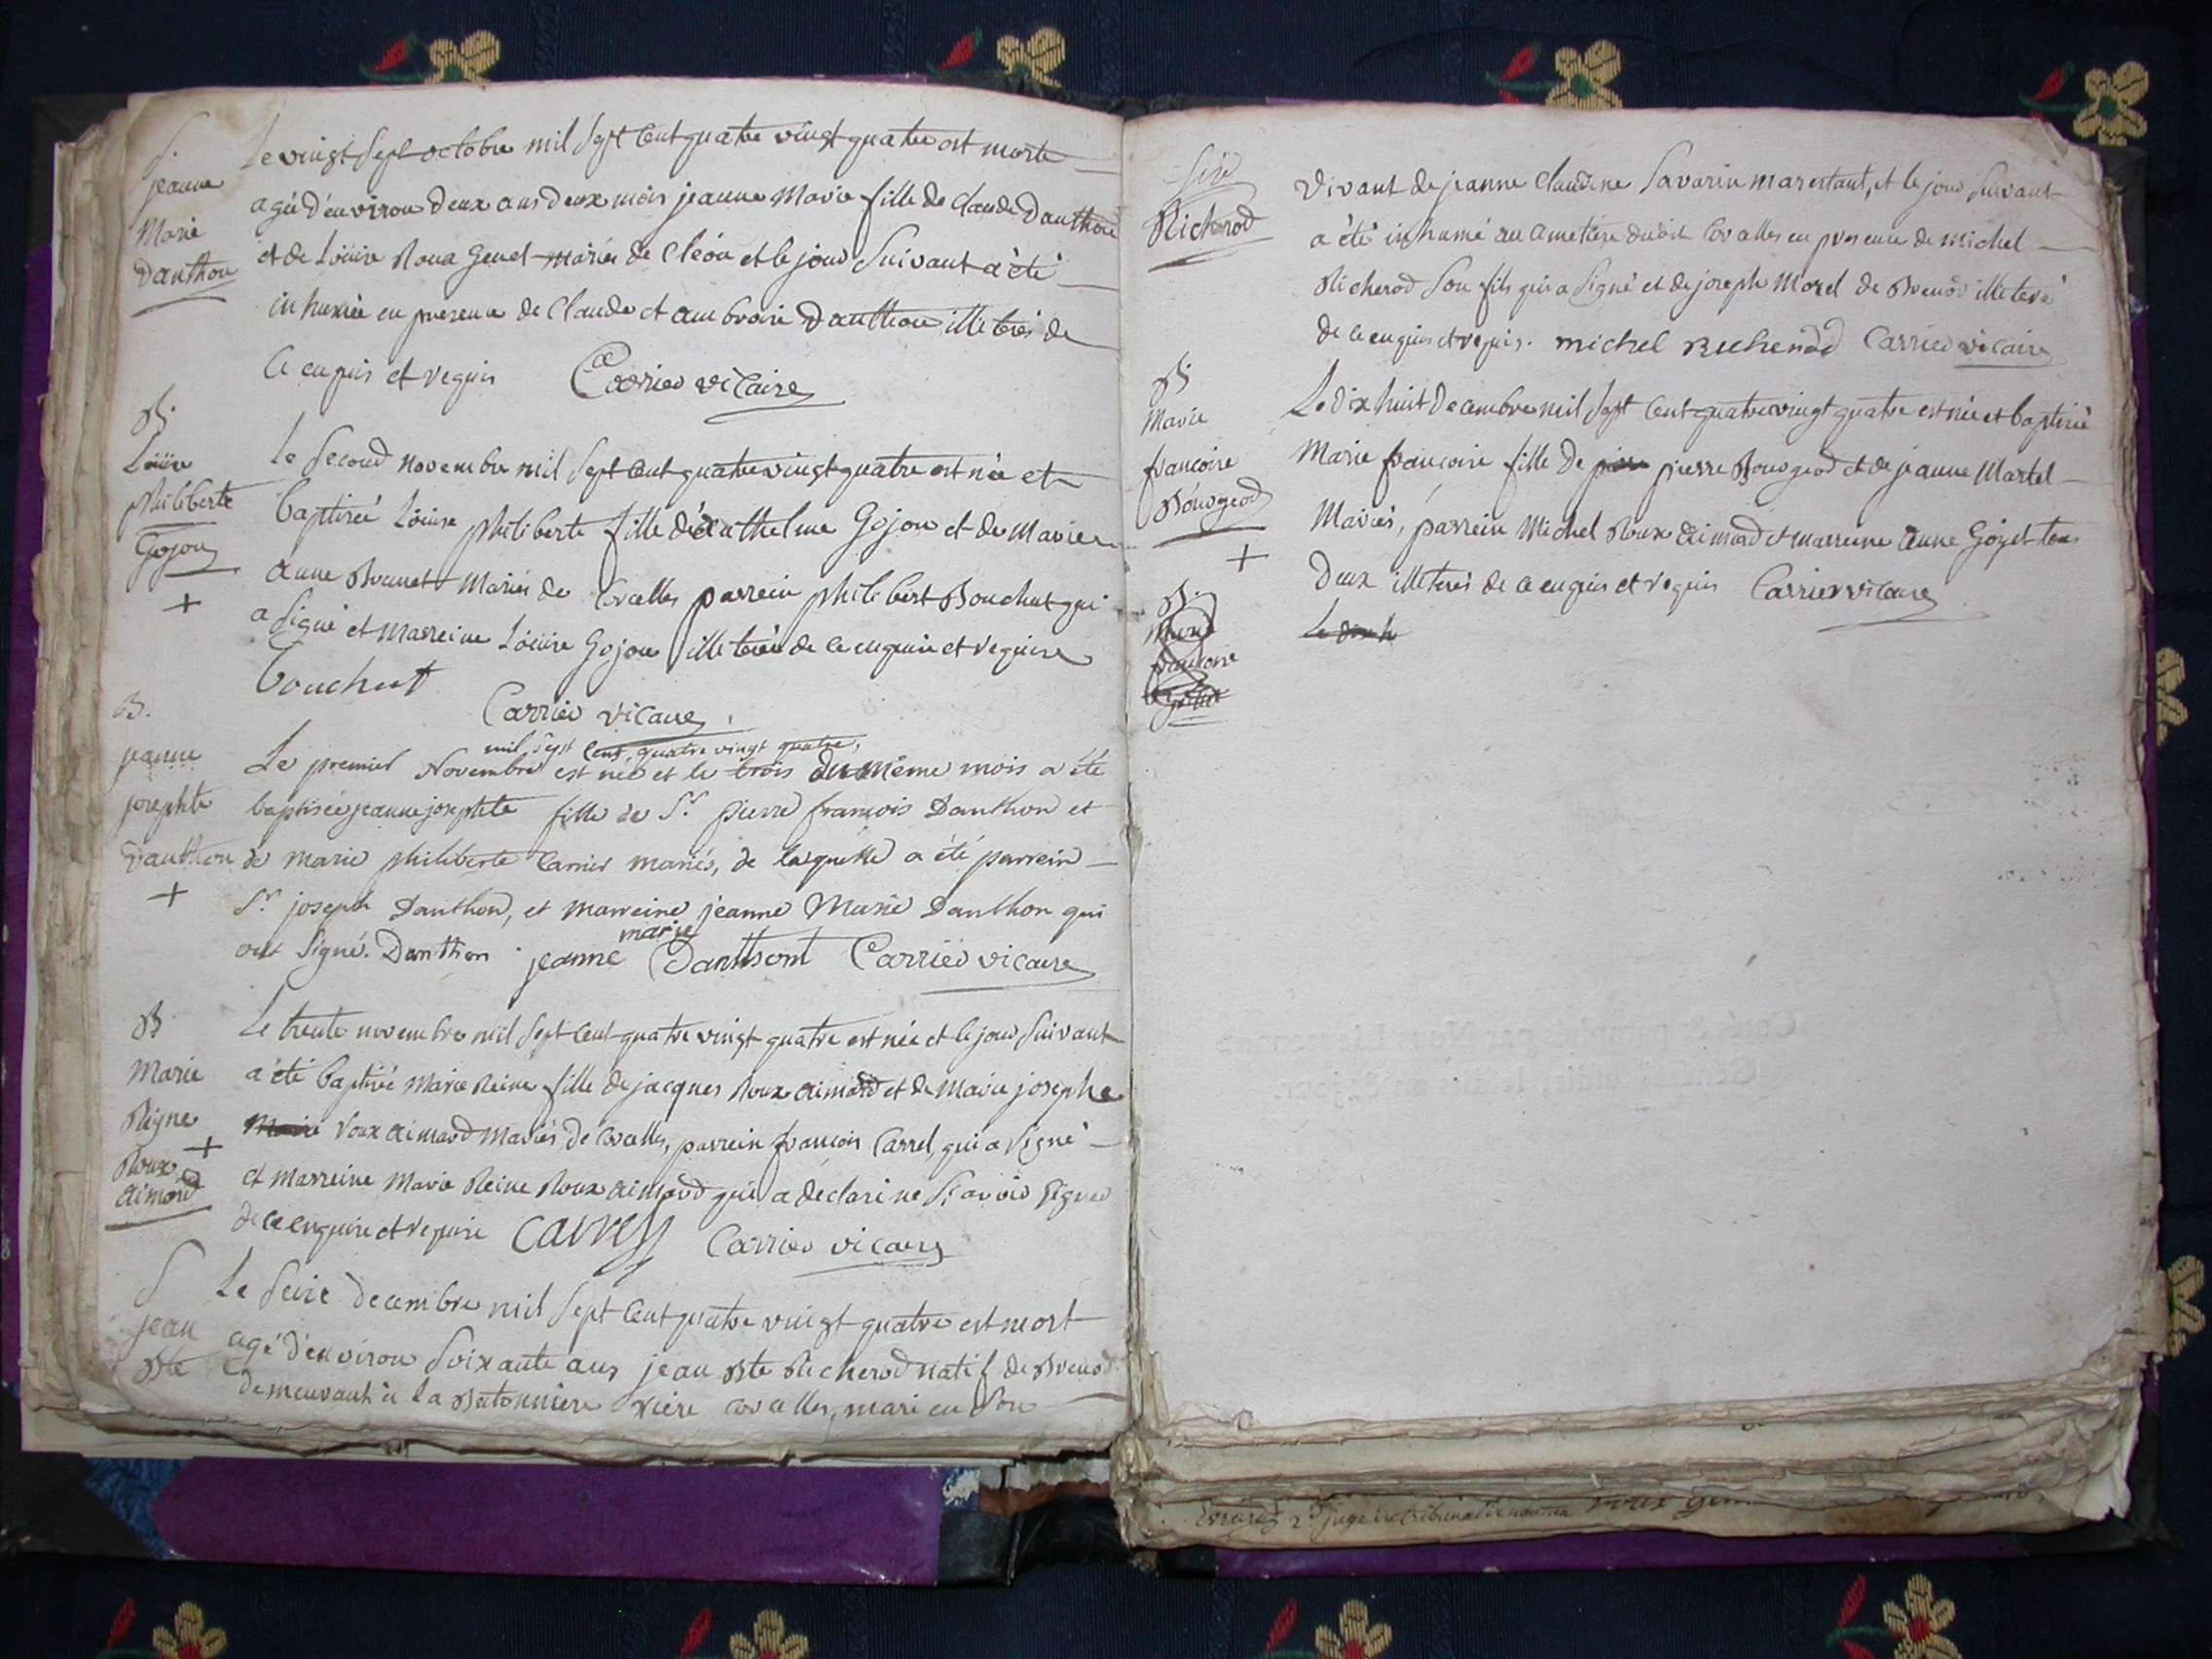 S.
jeanne
Marie
Danthon
Le vingt Sept octobre mil Sept Cent quatre vingt quatre est morte
agée d'environ deux ans deux mois jeanne Marie fille de Claude Danthon
et de Loüise Roux Genet mariés de Cléon et le jour Suivant a été
inhumée en presence de Claude et Ambroise Danthon illiterés de
Ce enquis et requis Carrier vicaire
B.
Loüise
philiberte
Gojon
+
Le Second novembre mil Sept Cent quatre vingt quatre est née et
baptisée Loüise philiberte fille d'Anthelme Gojon et de Marie
anne Brunet Mariés de Corcelles parrein philibert Bouchut qui
a Signé et Marreine Loüise Gojon illiterée de ce enquise et requise
bouchut
Carrier vicaire
B.
jeanne
josephte
Danthon
+
mil Sept Cent quatre vingt quatre,
Le premier Novembre est née et le trois du même mois a été
baptisée jeanne josephte fille de Sr. pierre françois Danthon et
de marie philiberte Carrier mariés, de laquelle a été parrein
Sr. joseph Danthon, et marreine jeanne Marie Danthon qui
marie
ont Signé. Danthon jeanne Danthont Carrier vicaire
B.
Marie
Reyne
+
Roux
aimard
Le trente novembre mil Sept Cent quatre vingt quatre est née et le jour Suivant
a été baptisée Marie Reine fille de jacques Roux aimard et de Marie josephe
Marie roux aimard Mariés de Corcelles, parrein françois Carrel, qui a Signé
et marreine Marie Reine Roux aimard qui a déclaré ne Sçavoir Signer
de ce enquise et requise Carrel Carrier vicaire
S
jean
Bte
Le Seize decembre mil Sept Cent quatre vingt quatre est mort
agé d'environ Soixante ans jean Bte Richerod natif de Brenod
demeurant à la Batonnière riere Corcelles, mari en Son
Richerod
vivant de jeanne Claudine Savarin marestant, et le jour Suivant
a été inhumé au Cimetière dudit Corcelles en presence de michel
Richerod Son fils qui a Signé et de joseph Morel de Brenod illiteré
de ce enquis et requis. michel Richerod Carrier vicaire
B.
Marie
françoise
Bourgeod
+
Le dix huit decembre mil Sept Cent quatre vingt quatre est née et baptisée
Marie françoise fille de pierre Bourgeod et de jeanne Martel
Mariés, parrein Michel Roux aimard et marreine anne Goyet tous
Deux illiterés de ce enquis et requis Carrier vicaire
B.
Marie
françoise
Le dix h